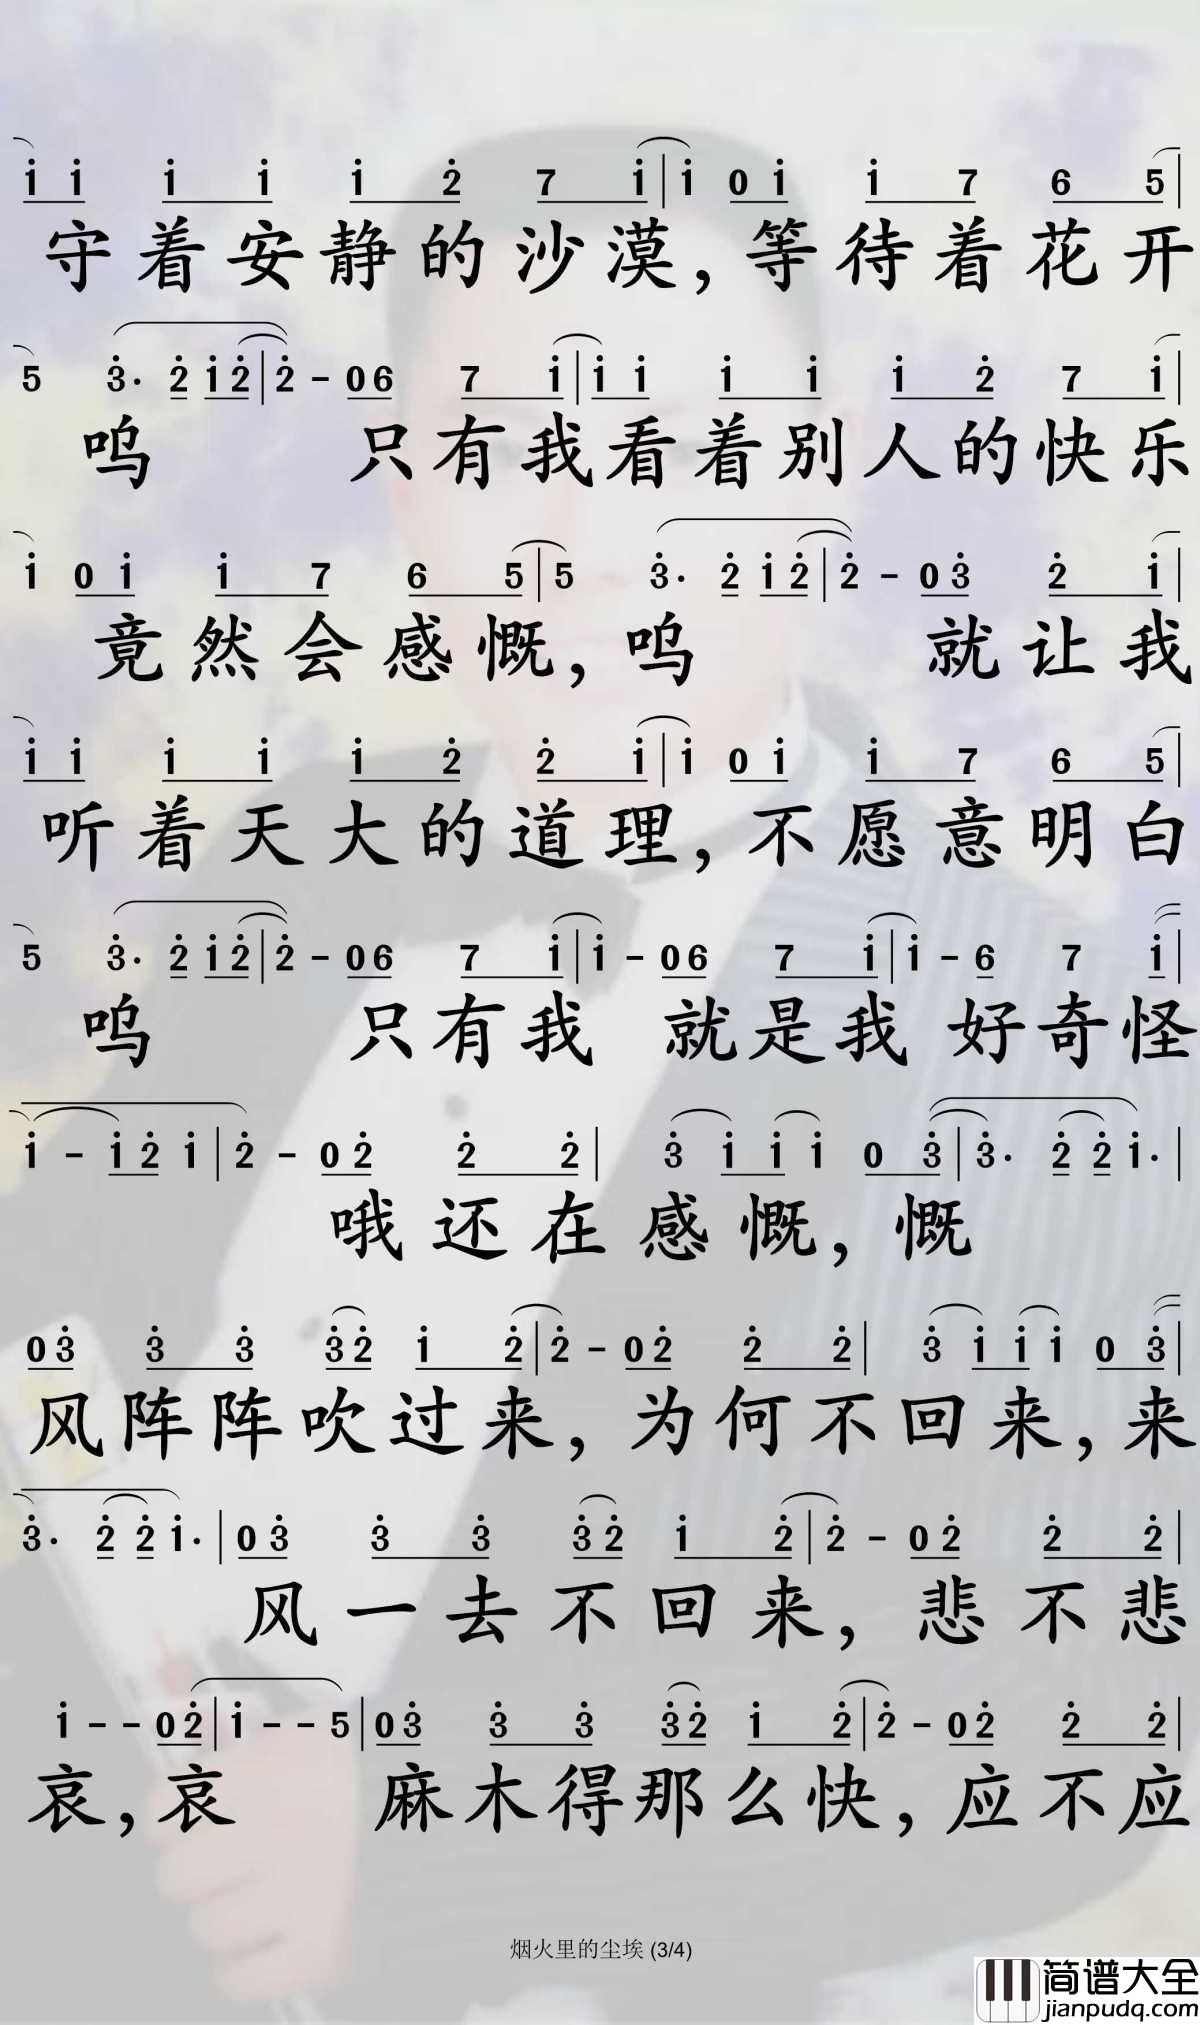 i i i i i 2 7 i | i 0 i i 7 6 5 |
守着安静的沙漠,等待着花开
5 3· 2 i 2 | 2 - 0 6 7 i | i i i i i 2 7 i |
呜 只有我看着别人的快乐
i 0 i i 7 6 5 | 5 3· 2 i 2 | 2 - 0 3 2 i |
竟然会感慨,呜 就让我
i i i i i 2 2 i | i 0 i i 7 6 5 |
听着天大的道理,不愿意明白
5 3· 2 i 2 | 2 - 0 6 7 i | i - 0 6 7 i | i - 6 7 i |
呜 只有我 就是我 好奇怪
i - i 2 i | 2 - 0 2 2 2 | 3 i i i 0 3 | 3· 2 2 i· |
哦还在感慨,慨
0 3 3 3 3 2 i 2 | 2 - 0 2 2 2 | 3 i i i 0 3 |
风阵阵吹过来,为何不回来,来
3· 2 2 i· | 0 3 3 3 3 2 i 2 | 2 - 0 2 2 2 |
风一去不回来,悲不悲
i - - 0 2 | i - - 5 | 0 3 3 3 3 2 i 2 | 2 - 0 2 2 2 |
哀,哀 麻木得那么快,应不应
烟火里的尘埃 (3/4)
简谱大全
jianpudq.com